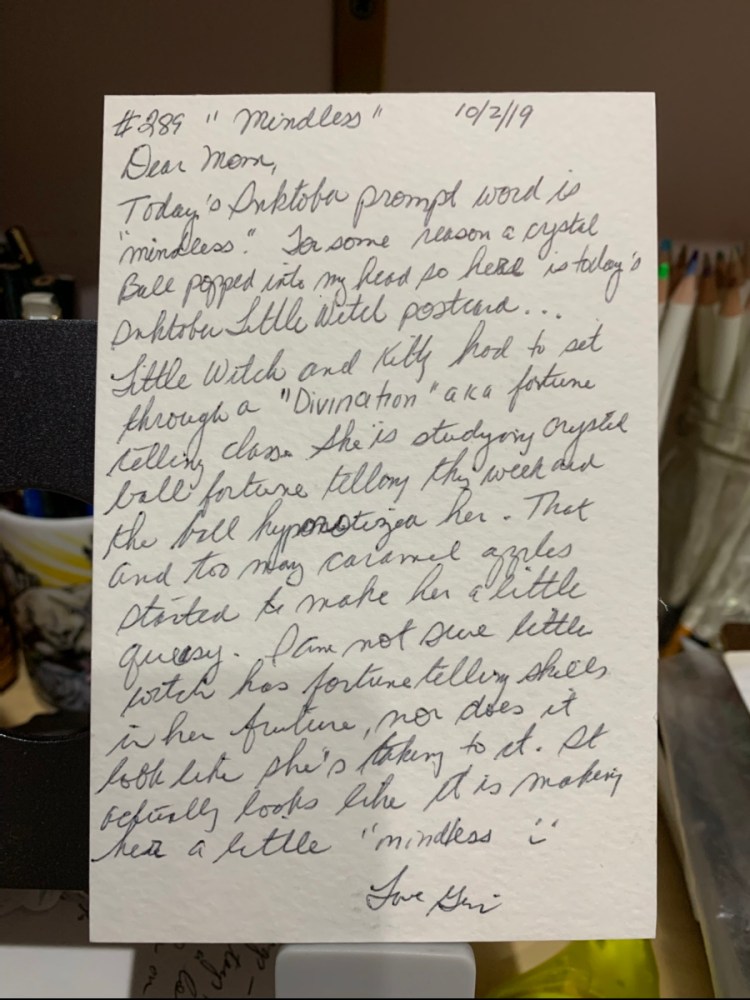 #289 "Mindless" 10/2/19
Dear Mom,
Today's Inktober prompt word is
"mindless." For some reason a crystal
Ball popped into my head so here is today's
Inktober Little Witch postcard...
Little Witch and Kitty had to set
through a "Divination" aka fortune
telling class. She is studying crystal
ball fortune telling this week and
the ball hypnotized her. That
and too may caramel apples
started to make her a little
queasy. I am not sure little
witch has fortune telling skills
in her fruture, nor does it
look like she's taking to it. It
actually looks like it is making
her a little "mindless
Love